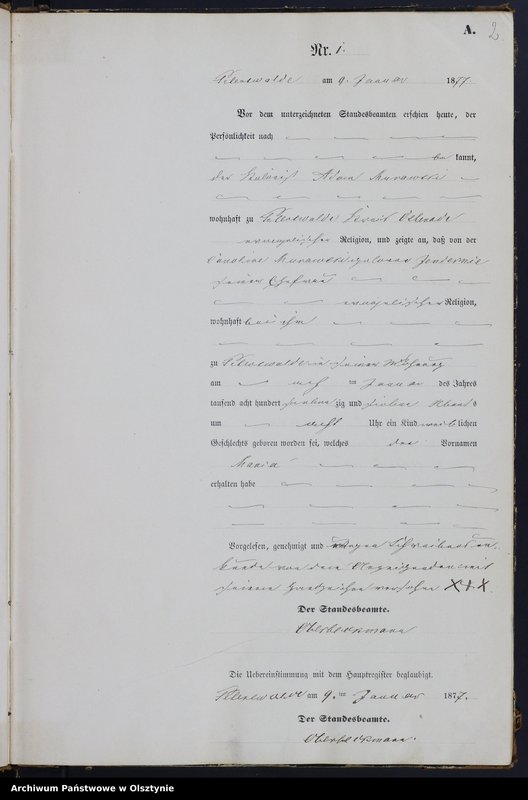 A. 2
Nr. 1.
am 9. Januar 1877.
Vor dem unterzeichneten Standesbeamten erschien heute, der
Persönlichkeit nach
be kannt,
der Adam Murawski
wohnhaft zu Kreis Osterode
evangelischer Religion, und zeigte an, daß von der
Caroline Murawski geborene
seiner Ehefrau
evangelischer Religion,
wohnhaft bei ihm
zu in seiner Wohnung
am ten Januar des Jahres
tausend acht hundert siebenzig und sieben Abends
um acht Uhr ein Kind weiblichen
Geschlechts geboren worden sei, welches den Vornamen
Maria
erhalten habe
Vorgelesen, genehmigt und wegen Schreibens un-
kunde von dem Anzeigenden mit
seinem Handzeichen versehen XXX.
Der Standesbeamte.
Die Uebereinstimmung mit dem Hauptregister beglaubigt.
am 9. ten Januar 1877.
Der Standesbeamte.
Archiwum Państwowe w Olsztynie